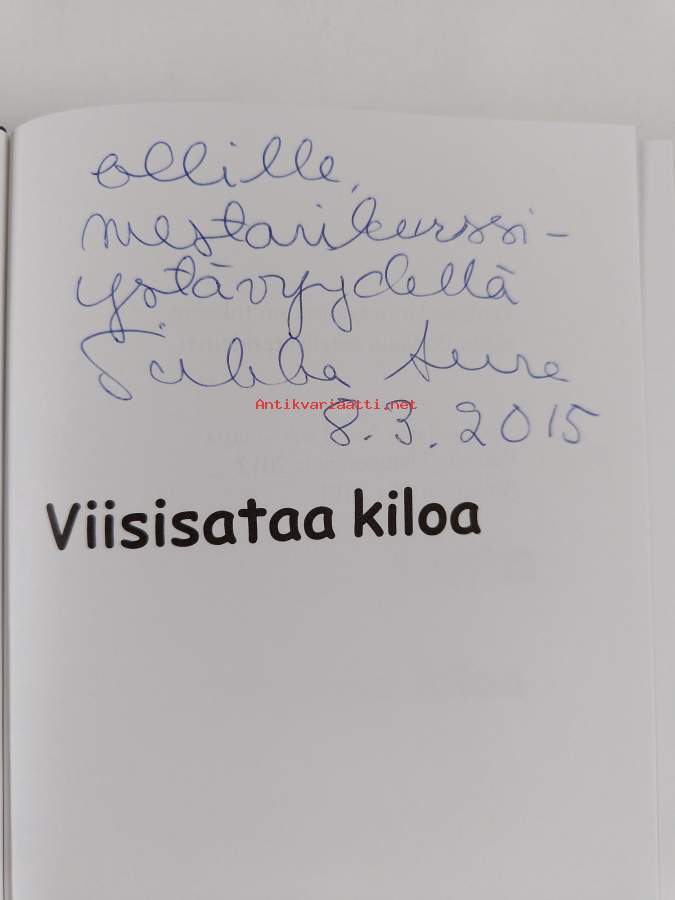 Ollille,
mestarikurssi-
ystävyydellä
Tilkka Aure
Antikvariaatti.net
8.3.2015
Viisisataa kiloa